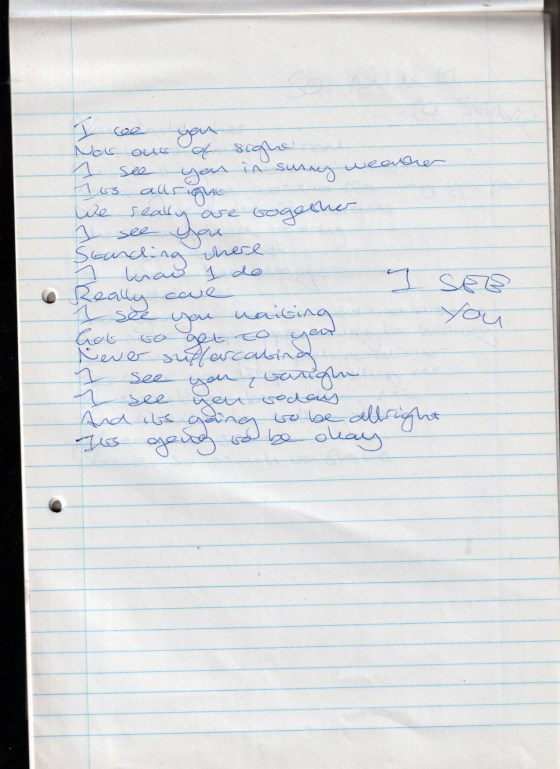 I see you
Not out of sight
I see you in sunny weather
Its allright
We really are together
I see you
Standing there
I know I do
Really care
I see you waiting
Got to get to you
Never suffarcating
I see you, tonight
I see you today
And its going to be allright
Its going to be okay
I SEE
YOU